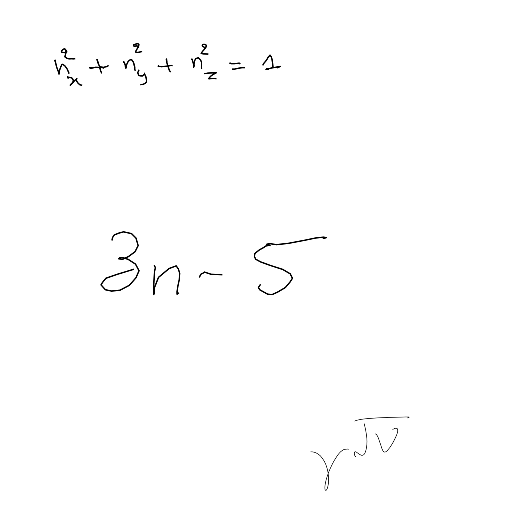 n_x^2 + n_y^2 + n_z^2 = 1
3n - 5
γ√v